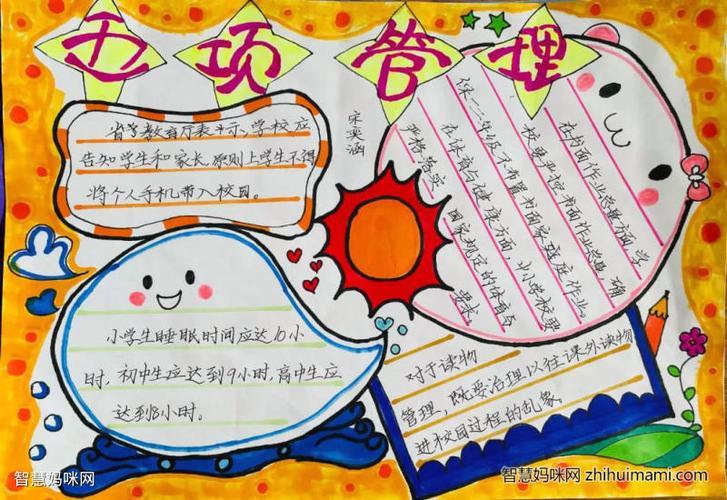 五项管理
省等教育厅表示,学校应
告知学生和家长,原则上学生不得
将个人手机带入校园。
宋奕涵
在书面作业总量方面,学
校要严控书面作业总量,确
保一二年级不布置书面家庭作业。
在体育与健康方面,中小学校理
严格落实国家规定的体育与
要求
小学生睡眠时间应达10小
时,初中生应达到9小时,高中生应
达到8小时。
对于读物
管理,既要治理以往课外读物
进校园过程的乱象。
智慧妈咪网
智慧妈咪网 zhihuimami.com